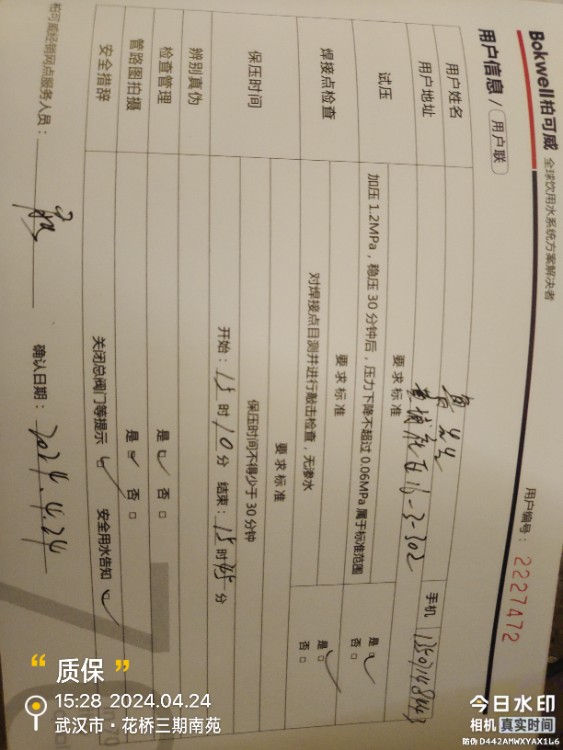 Bokwell柏可威 全球饮用水系统方案解决者
用户编号： 2227472
用户信息 / 用户联
用户姓名 先生 手机
用户地址 16-3-302
试压 要求标准
加压 1.2MPa，稳压 30 分钟后，压力下降不超过 0.06MPa 属于标准范围 是 ✓ 否 □
焊接点检查 要求标准
对焊接点目测并进行敲击检查，无渗水 是 ✓ 否 □
保压时间 要求标准
保压时间不得少于 30 分钟
开始：15 时 10 分 结束：15 时 45 分
辨别真伪
检查管理 是 ✓ 否 □
管路图拍摄 是 ✓ 否 □
安全措辞 关闭总阀门等提示 ✓ 安全用水告知 ✓
柏可威经销网点服务人员： 确认日期：2024.4.24
“质保”
15:28 2024.04.24
武汉市·花桥三期南苑
今日水印
相机 真实时间
防伪 D442AMWXYAX1L6